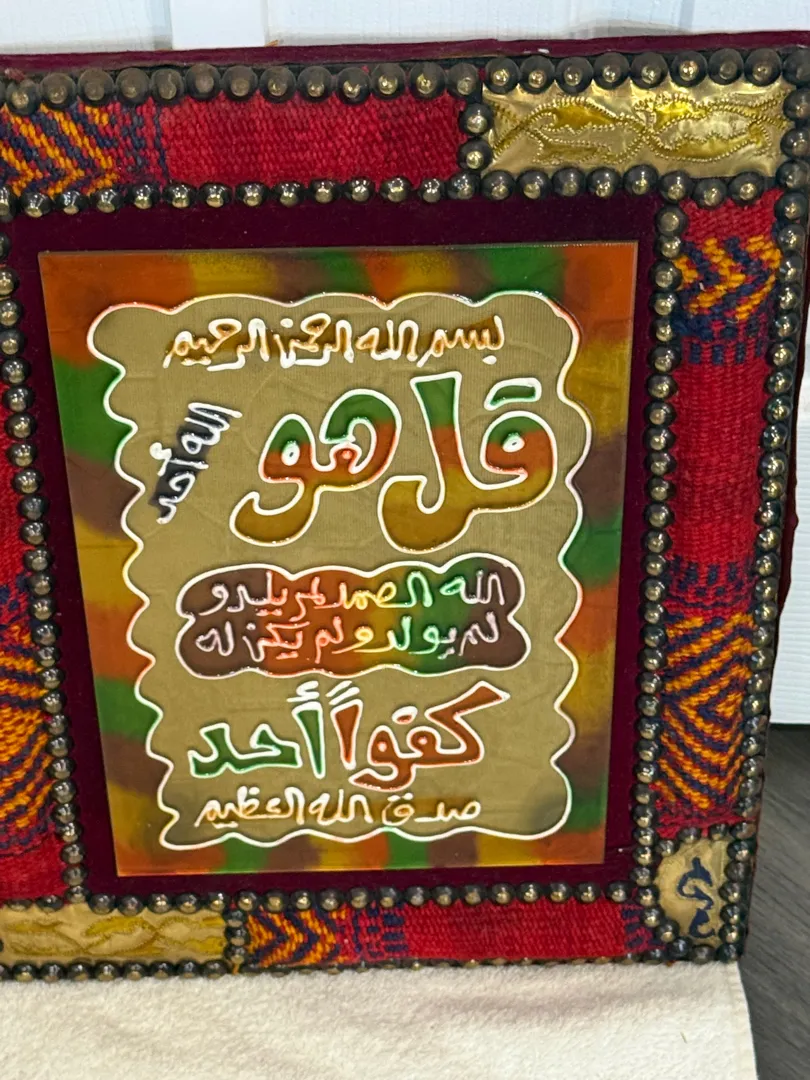 بسم الله الرحمن الرحيم
قل هو
الله أحد
الله الصمد لم يلد و
لم يولد ولم يكن له
كفواً أحد
صدق الله العظيم